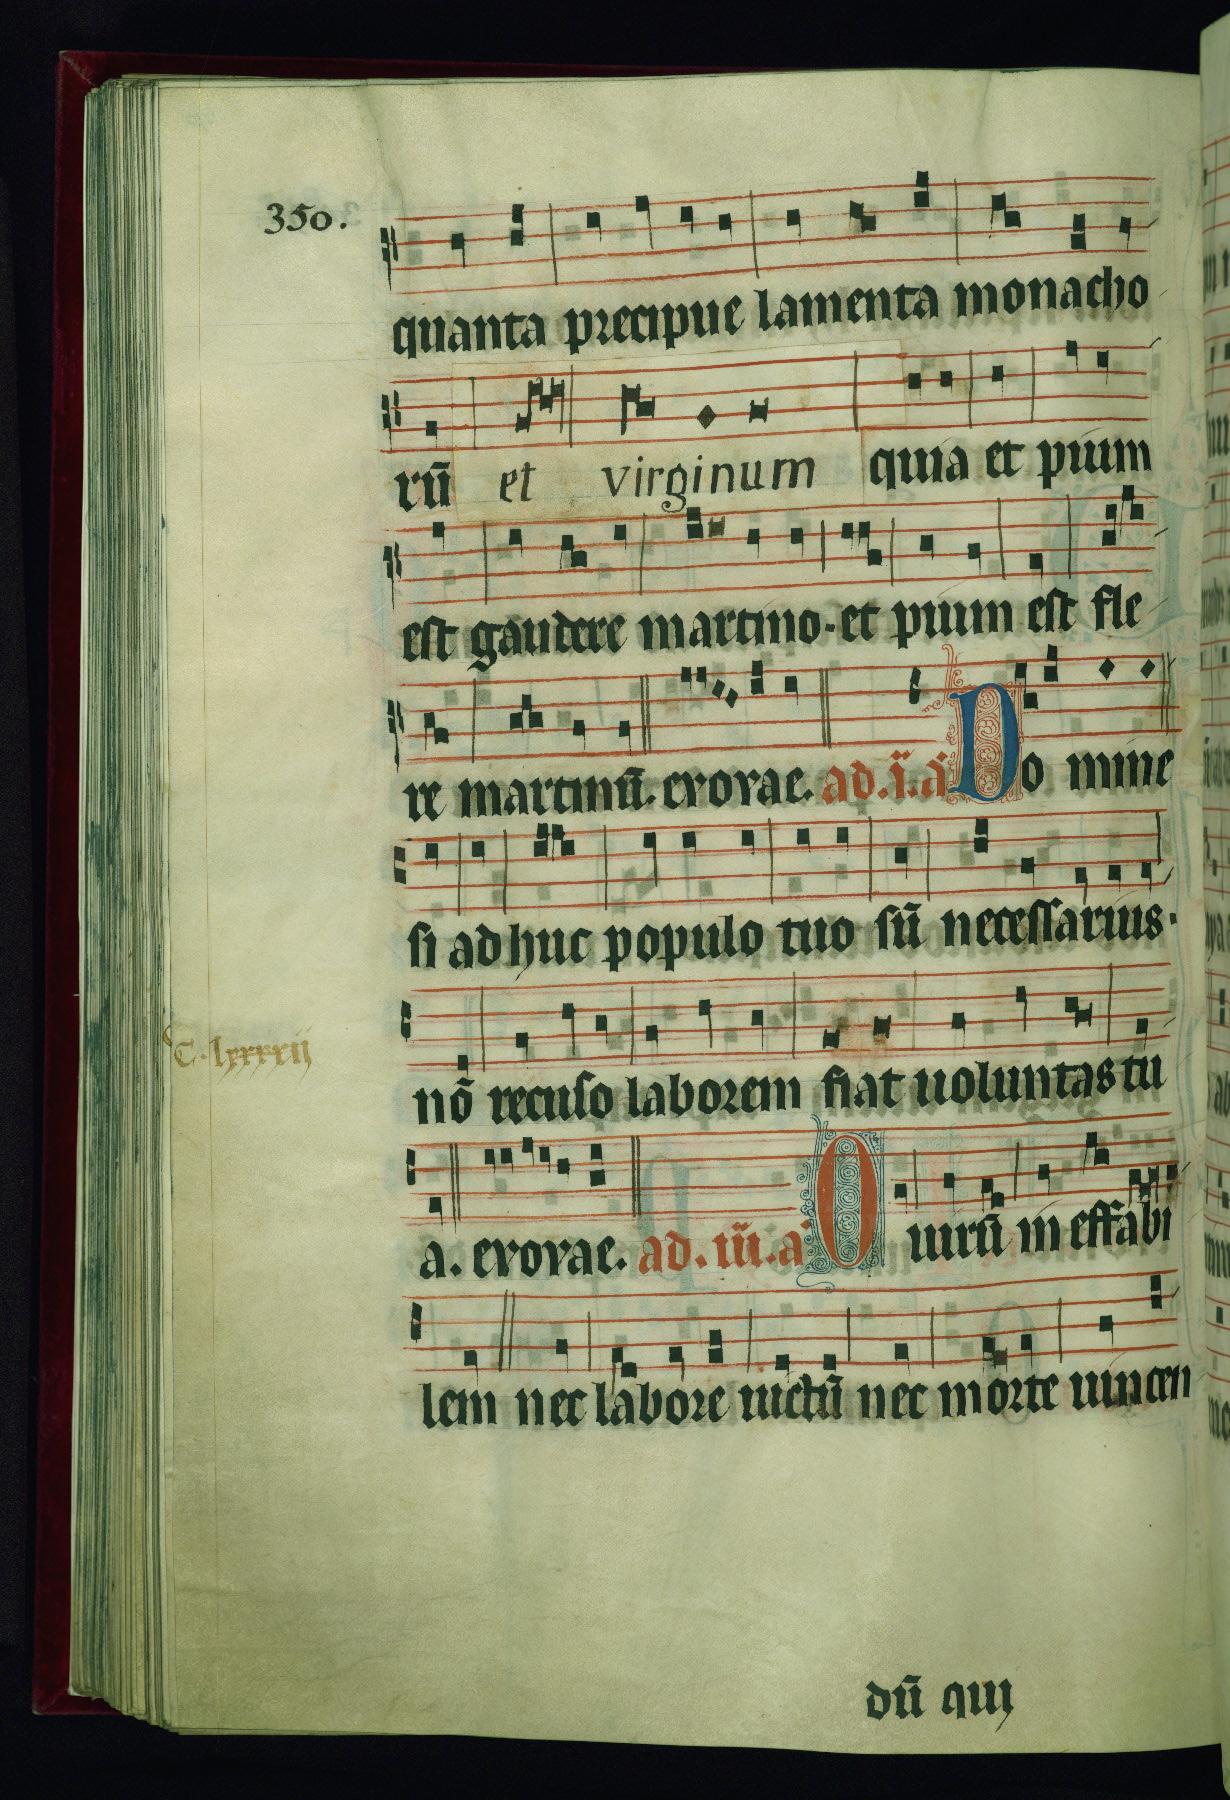 350.
quanta precipue lamenta monacho
rū et virginum quia et pium
est gaudere martino. et pium est fle
re martinū. evovae. ad .i. a Do mine
si adhuc populo tuo sū necessarius.
C. lxxxxii
nō recuso laborem fiat uoluntas tu
a. evovae. ad .iii. a O uirū in effabi
lem nec labore uictū nec morte uincen
dū qui